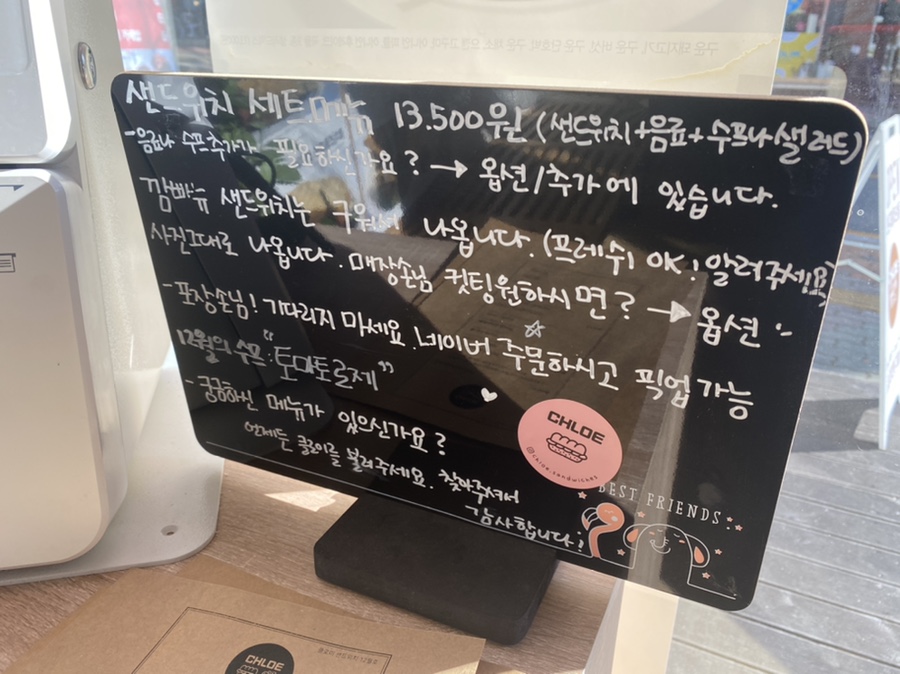 샌드위치 세트메뉴 13.500원 (샌드위치+음료+수프나샐러드)
-음료나 수프추가가 필요하신가요? → 옵션/추가에 있습니다.
깜빠뉴 샌드위치는 구워서 나옵니다. (프레쉬 OK, 알려주세요)
사진그대로 나옵니다. 매장손님 컷팅원하시면? → 옵션
-포장손님! 기다리지 마세요. 네이버 주문하시고 픽업가능
12월의 수프: "토마토르제"
- 궁금하신 메뉴가 있으신가요?
언제든 클로이를 불러주세요. 찾아주셔서
감사합니다!
CHLOE
@chloe.sandwiches
BEST FRIENDS
CHLOE